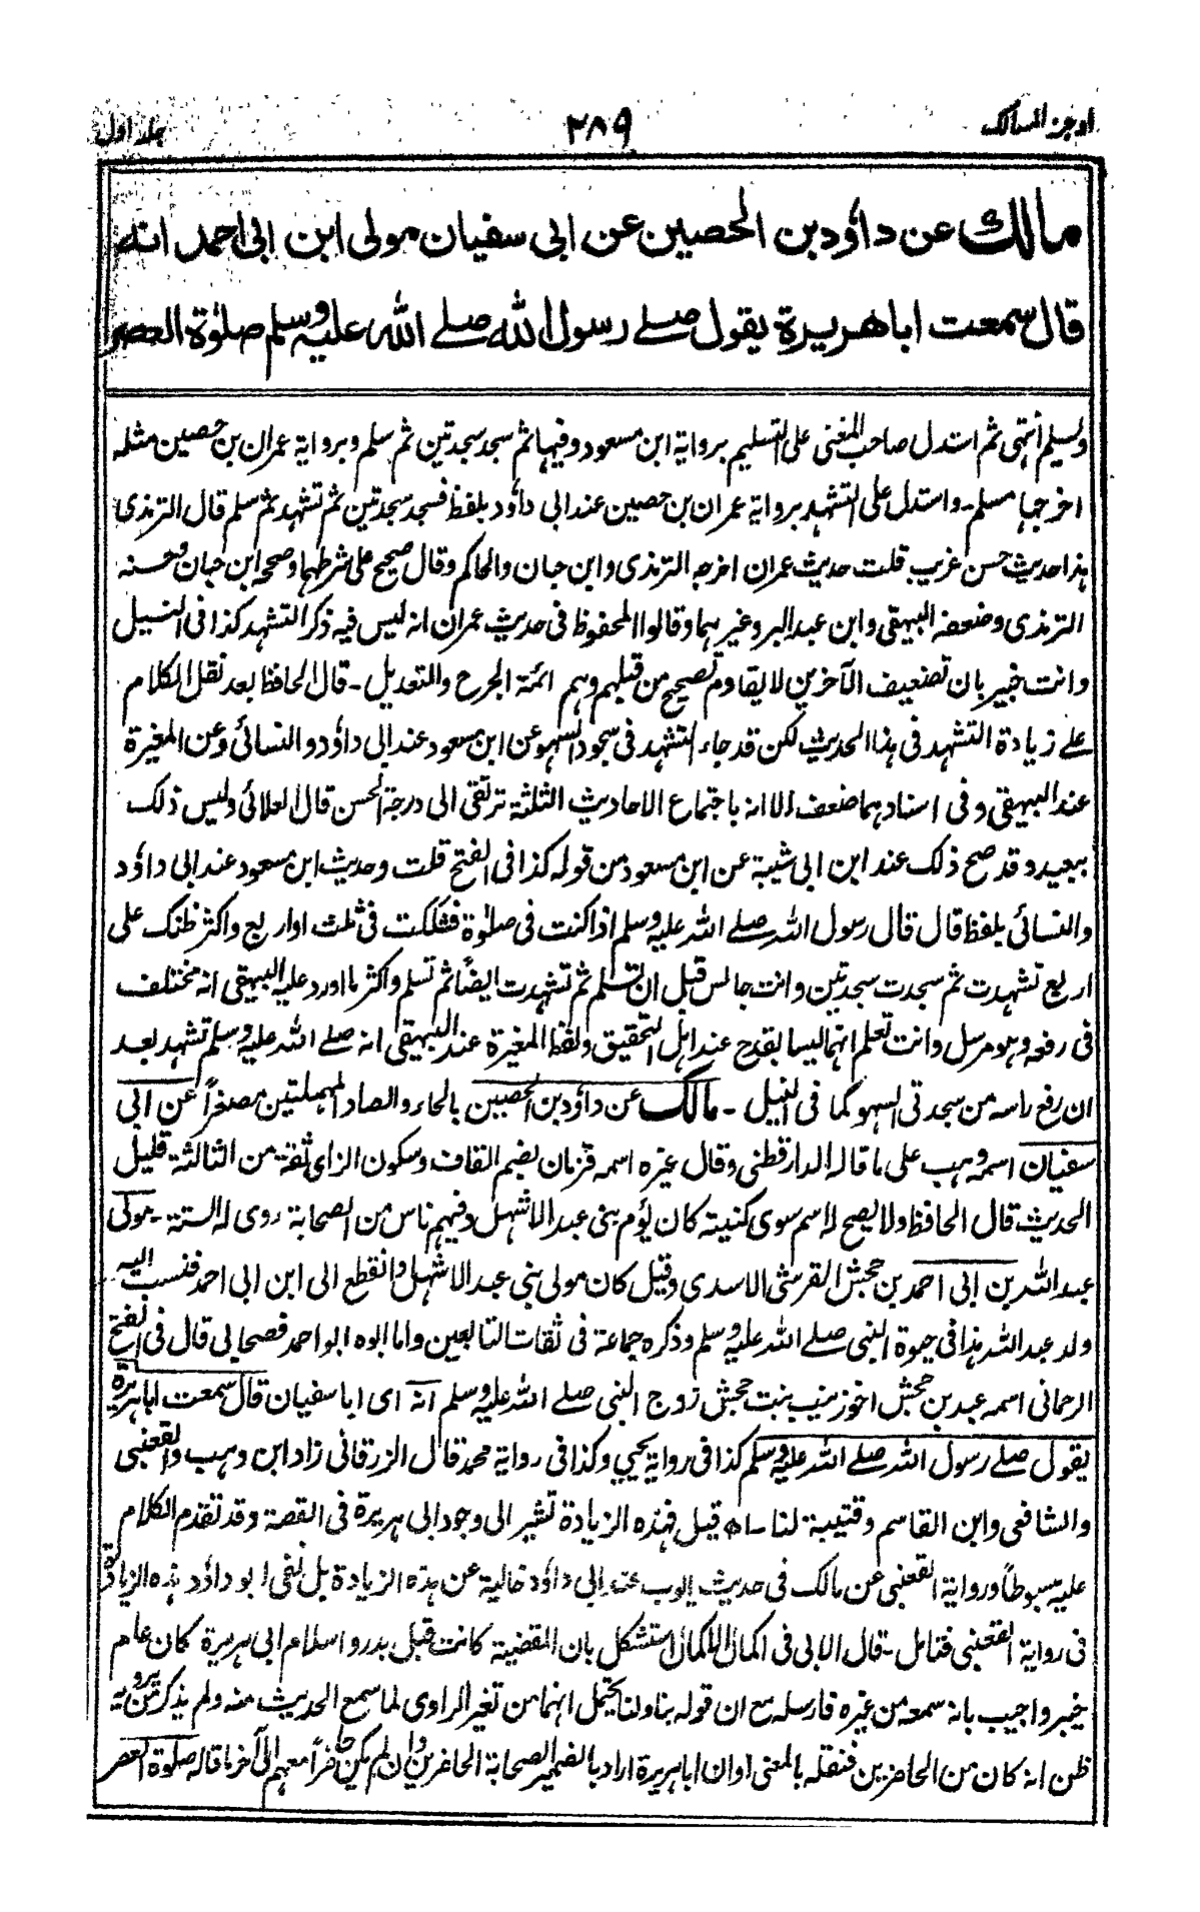 اوجز المسالك ٢٨٩ جلد اول
مالك عن داؤد بن الحصين عن ابى سفيان مولى ابن ابى احمد انه
قال سمعت ابا هريرة يقول صلے رسول الله صلے الله عليه وسلم صلوٰة العصر
وتسليم أنتهى ثم استدل صاحب المغنى على التسليم برواية ابن مسعود وفيها ثم سجد سجدتين ثم سلم وبرواية عمران بن حصين مثله
اخرجها مسلم ـ واستدل على التشهد برواية عمران بن حصين عند ابى داؤد بلفظ فسجد سجدتين ثم تشهد ثم سلم قال الترمذى
هذا حديث حسن غريب قلت حديث عمران اخرجه الترمذى وابن حبان والحاكم وقال صحيح على شرطهما وصححه ابن حبان وحسنه
الترمذى وضعفه البيهقى وابن عبد البر وغيرهما وقالوا المحفوظ فى حديث عمران انه ليس فيه ذكر التشهد كذا فى النيل
وانت خبير بان تضعيف الآخرين لا يقاوم تصحيح من قبلهم وهم ائمة الجرح والتعديل ـ قال الحافظ بعد نقل الكلام
علے زيادة التشهد فى هذا الحديث لكن قد جاء التشهد فى سجود السهو عن ابن مسعود عند ابى داؤد والنسائى وعن المغيرة
عند البيهقى وفى اسنادهما ضعف الا انه باجتماع الاحاديث الثلثة ترتقى الى درجة الحسن قال العلائى وليس ذلك
ببعيد وقد صح ذلك عند ابن ابى شيبة عن ابن مسعود من قوله كذا فى الفتح قلت وحديث ابن مسعود عند ابى داؤد
والنسائى بلفظ قال قال رسول الله صلے الله عليه وسلم اذا كنت فى صلوٰة فشككت فى ثلث او اربع واكثر ظنك على
اربع تشهدت ثم سجدت سجدتين وانت جالس قبل ان تسلم ثم تشهدت ايضًا ثم تسلم واكثر ما اورد عليه البيهقى انه مختلف
فى رفعه وهو مرسل وانت تعلم انهما ليسا بقدح عند اهل التحقيق ولفظ المغيرة عند البيهقى انه صلے الله عليه وسلم تشهد بعد
ان رفع راسه من سجدتى السهو كما فى النيل ـ مالك عن داؤد بن الحصين بالحاء والصاد المهملتين مصغرًا عن ابى
سفيان اسمه وهب على ما قاله الدارقطنى وقال غيره اسمه قزمان بضم القاف وسكون الزاى ثقة من الثالثة قليل
الحديث قال الحافظ ولا يصح له اسم سوى كنيته كان يؤم بنى عبد الاشهل وفيهم ناس من الصحابة روى له الستة ـ مولى
عبد الله بن ابى احمد بن جحش القرشى الاسدى وقيل كان مولى بنى عبد الاشهل وانقطع الى ابن ابى احمد فنسب اليه
ولد عبد الله هذا فى حيوة النبى صلے الله عليه وسلم وذكره جماعة فى ثقات التابعين واما ابوه ابو احمد فصحابى قال فى الفتح
الرحمانى اسمه عبد بن جحش اخو زينب بنت جحش زوج النبى صلے الله عليه وسلم انه اى ابا سفيان قال سمعت ابا هريرة
يقول صلے رسول الله صلے الله عليه وسلم كذا فى رواية يحيى وكذا فى رواية محمد قال الزرقانى زاد ابن وهب والقعنبى
والشافعى وابن القاسم وقتيبة لنا ـ اھ قيل فهذه الزيادة تشير الى وجود ابى هريرة فى القصة وقد تقدم الكلام
عليه مبسوطًا ورواية القعنبى عن مالك فى حديث ايوب عند ابى داؤد خالية عن هذه الزيادة بل نفى ابو داؤد هذه الزيادة
فى رواية القعنبى فتامل ـ قال الابى فى اكمال الاكمال استشكل بان القضية كانت قبل بدر واسلام ابى هريرة كان عام
خيبر واجيب بانه سمعه من غيره فارسله مع ان قوله بنا ولنا يحتمل انهما من تغير الراوى لما سمع الحديث منه ولم يذكر من يرويه
ظن انه كان من الحاضرين فنقله بالمعنى او ان ابا هريرة اراد بالضمير الصحابة الحاضرين وان لم يكن حاضرًا معهم الى آخر ما قاله صلوٰة العصر